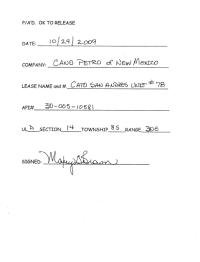 P/A'D. OK TO RELEASE
DATE: 10/29/2009
COMPANY: CANO PETRO of NEW MEXICO
LEASE NAME and #. CATO SAN ANDRES UNIT #78
API# 30-005-10581
UL D SECTION 14 TOWNSHIP 8S RANGE 30E
SIGNED: